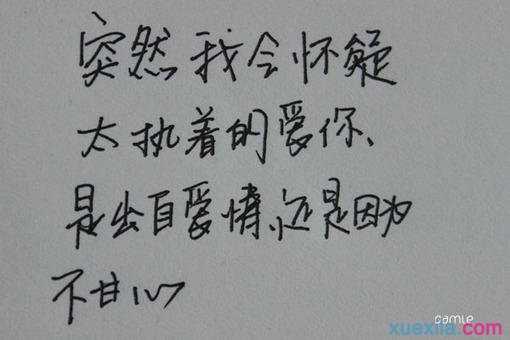 突然我会怀疑
太执着的爱你、
是出自爱情,还是因为
不甘心
camle
xuexila.com